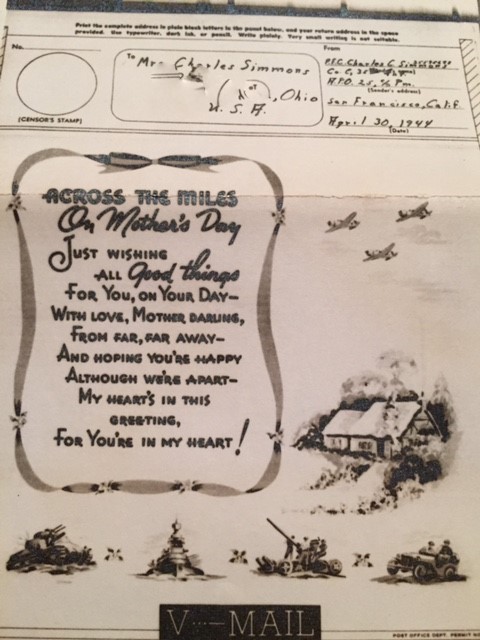 Print the complete address in plain block letters in the panel below, and your return address in the space
provided. Use typewriter, dark ink, or pencil. Write plainly. Very small writing is not suitable.
No.
(CENSOR'S STAMP)
To
Mrs. Charles Simmons
Ohio
U. S. A.
From
P.F.C. Charles C.
Co C, 35
A.P.O. 25, % P.m.
(Sender's address)
San Francisco, Calif.
April 30, 1944
(Date)
ACROSS THE MILES
On Mother's Day
JUST WISHING
ALL Good things
FOR YOU, ON YOUR DAY—
WITH LOVE, MOTHER DARLING,
FROM FAR, FAR AWAY—
AND HOPING YOU'RE HAPPY
ALTHOUGH WE'RE APART—
MY HEART'S IN THIS
GREETING,
FOR YOU'RE IN MY HEART!
V···—MAIL
POST OFFICE DEPT. PERMIT NO